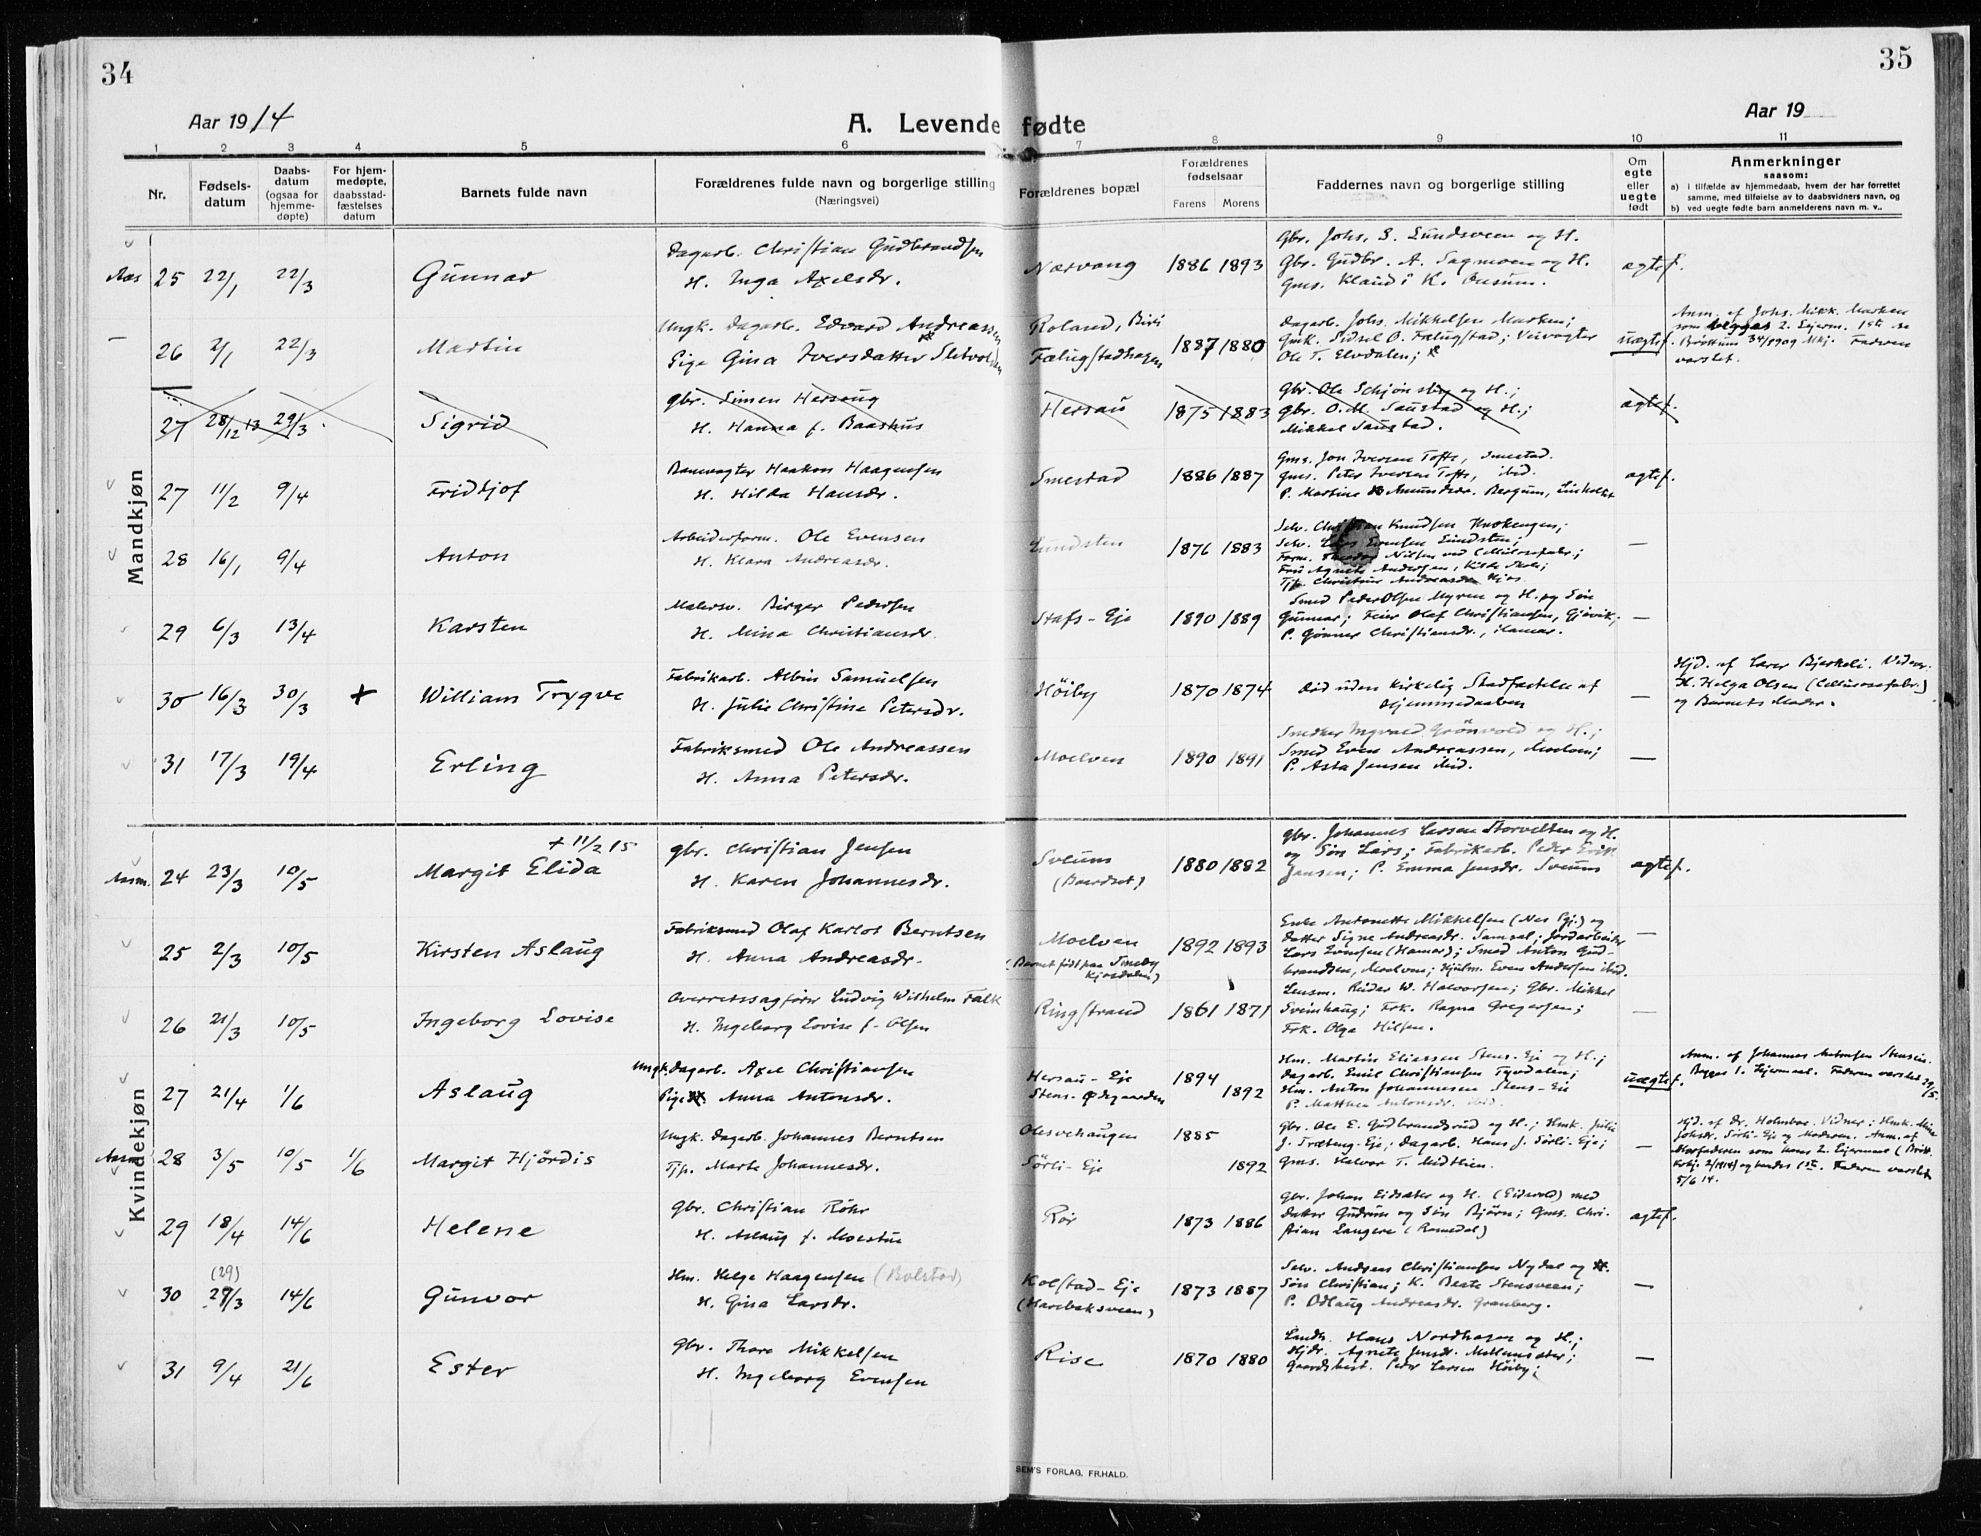 34
35
Aar 1914
A. Levende fødte
Aar 19
1 2 3 4 5 6 7 8 9 10 11
Nr.
Fødsels-
datum
Daabs-
datum
(ogsaa for
hjemme-
døpte)
For hjem-
medøpte,
daabsstad-
fæstelses
datum
Barnets fulde navn
Forældrenes fulde navn og borgerlige stilling
(Næringsvei)
Forældrenes bopæl
Forældrenes
fødselsaar
Farens Morens
Faddernes navn og borgerlige stilling
Om
egte
eller
uegte
født
Anmerkninger
saasom:
a) i tilfælde av hjemmedaab, hvem der har forrettet
samme, med tilføielse av to daabsvidners navn, og
b) ved uegte fødte barn anmelderens navn m. v..
Mandkjøn
Aas 25 22/1 22/3 Gunnar
Dagarb. Christian Gudbrandsen
H. Inga Axelsdr.
Narvang 1886 1893
Gbr. Johs. S. Lundsveen og H.
Gbr. Gudbr. A. Sagmoen og H.
ægtef.
— 26 2/1 22/3 Martin
Ungk. Dagarb. Edvard Andreassen
Pige Gina Iversdatter
Roland, Biri
Fælugstadhagen
1887 1880
Dagarb. Johs. Mikkelsen Marken;
Gmk. Sidsel O. Falugstad; Veivogter
Ole T. Elvdalen;
uægtef.
Anm. af Johs. Mikk. Marken
som begges 2. Leierm.
Faderen
varslet.
27 28/12 13 29/3 Sigrid
gbr. Simen Hersoug
H. Hanna f. Baashus
Hersau 1875 1883
Gbr. Ole Schjønsby og H.;
gbr. O. M. Saustad og H.;
Mikkel Saustad.
ægtef.
27 11/2 9/4 Fridtjof
Banevogter Haakon Haagensen
H. Hilda Hansdr.
Smestad 1886 1887
Gms. Jon Iversen Tofte, Smestad.
gms. Peter Iversen Tofte, ibid.
P. Martine Amundsdr. Bergum,
ægtef.
28 16/1 9/4 Anton
Arbeiderform. Ole Evensen
H. Klara Andreasdr.
Lundsten 1876 1883
Selv. Christian Knudsen
Selv. Lars Evensen Lundsten;
Form. Nilsen ved Cellulosefabr;
Fru Agnete Andersen,
—
29 6/3 13/4 Karsten
Malersv. Birger Pedersen
H. Mina Christiansdr.
Stafs-Eje 1890 1889
Smed Peder Olsen Myren og H. og Søn
Gunnar; Feier Olaf Christiansen, Gjøvik;
P. Gunnar Christiansdr., Hamar.
—
30 16/3 30/3 + William Trygve
Fabrikarb. Albin Samuelsen
H. Julie Christine Petersdr.
Høiby 1870 1874
Død uden kirkelig Stadfæstelse af
Hjemmedaaben
—
Hjd. af Lærer Bjerkeli. Vidner:
H. Helga Olsen (Cellulosefabr.)
og Barnets Moder.
31 17/3 19/4 Erling
Fabriksmed Ole Andreassen
H. Anna Petersdr.
Moelven 1890 1891
Snedker Ingvald Grønvold og H.;
Smed Even Andreassen, Moelven;
P. Asta Jensen ibid.
—
Kvindekjøn
24 23/3 10/5 Margit Elida + 11/2 15
gbr. Christian Jensen
H. Karen Johannesdr.
Sveum
(Baardset)
1880 1882
gbr. Johannes Larsen Storvelten og H.
og Søn Lars; Fabrikarb. Peder Erik
Jensen; P. Emma Jensdr. Sveum
ægtef.
25 2/3 10/5 Kirsten Aslaug
Fabriksmed Olaf Karlot Berntsen
H. Anna Andreasdr.
Moelven
(Barnet født paa Smeby
1892 1893
Enke Antonette Mikkelsen (Nes Pgj.) og
Datter Signe Andreasdr. Samsal; Jordarbeider
Lars Evensen (Hamar); Smed Anton Gud-
brandsen, Moelven; Hjulm. Even Andersen ibid.
—
26 21/3 10/5 Ingeborg Lovise
Overretssagfører Ludvig Wilhelm Falk
H. Ingeborg Lovise f. Olsen
Ringstrand 1861 1871
Lensm. Reidar W. Halvorsen; gbr. Mikkel
Sveinhaug; Frk. Ragna Gregersen;
Frk. Olga Hilsen.
—
27 21/4 1/6 Aslaug
Ungk. Dagarb. Axel Christiansen
Pige Anna Antonsdr.
Hersau-Eje
Stens-Ødegaarden
1894
1892
Hm. Martin Eliassen Stens-Eje og H.;
Dagarb. Emil Christiansen Tyvdalen;
Hm. Anton Johannesen Stens-Eie
P. Mathea Antonsdr. ibid.
uægtef.
Anm. af Johannes Antonsen
Begges 1. Lejermaal. Faderen varslet 29/5.
28 3/5 10/5 1/6 Margit Hjørdis
Ungk. Dagarb. Johannes Berntsen
Tjp. Marte Johannesdr.
Olesvehaugen
Sørli-Eje
1885
1892
gbr. Ole E. Gudbrandsrud og H.; Hmk. Juli
J. Træteng-Eje; Dagarb. Hans J. Sørli-Eje;
gms. Halvor T. Midtlien.
—
Hjd. af Dr. Holmboe. Vidner: Hmk. Mina
Johsdr. Sørli-Eje og Moderen. Anm. af
Morfaderen som hans 2. Lejermaal
og hendes 1ste. Faderen varslet
5/6 14.
29 18/4 14/6 Helene
gbr. Christian Røhr
H. Aslaug f. Moestue
Rør 1873 1886
gbr. Johan Eidsater og H. (Eidsvold) med
Datter Gudrun og Søn Bjørn; gms. Chri-
stian Langere (Romedal)
ægtef.
30 (29) 29/3 14/6 Gunvor
Hm. Helge Haagensen (Bolstad)
H. Gina Larsdr.
Kolstad-Eje
(Harebaksveen)
1873 1887
Selv. Andreas Christiansen Nydal og
Søn Christian; K. Beate Stensveen;
P. Odlaug Andreasdr. Granberg.
—
31 9/4 21/6 Ester
gbr. Thore Mikkelsen
H. Ingeborg Evensen
Rise 1870 1880
Landh. Hans Nordhagen og H.;
Hjdr. Agnete Jensdr. Mellumsæter;
Gaardsbest. Peder Larsen Høiby;
—
SEM'S FORLAG, FR.HALD.